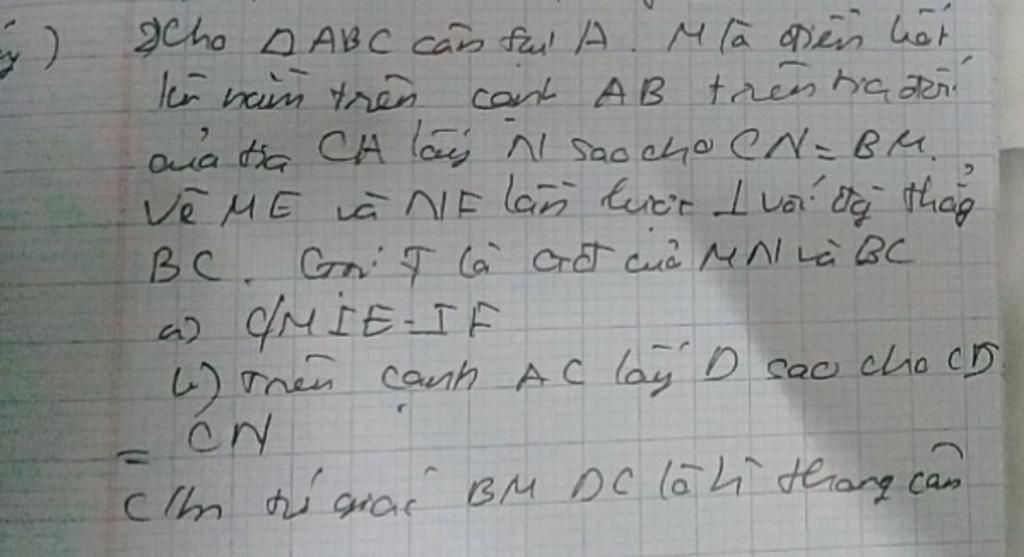 2) Cho △ABC cân tại A. M là điểm bất
kì nằm trên cạnh AB trên tia đối
của tia CA lấy N sao cho CN = BM.
Vẽ ME và NF lần lượt ⊥ với đg thẳg
BC. Gọi I là gđ của MN và BC
a) C/M IE = IF
b) Trên cạnh AC lấy D sao cho CD
= CN
C/m tứ giác BMDC là h thang cân